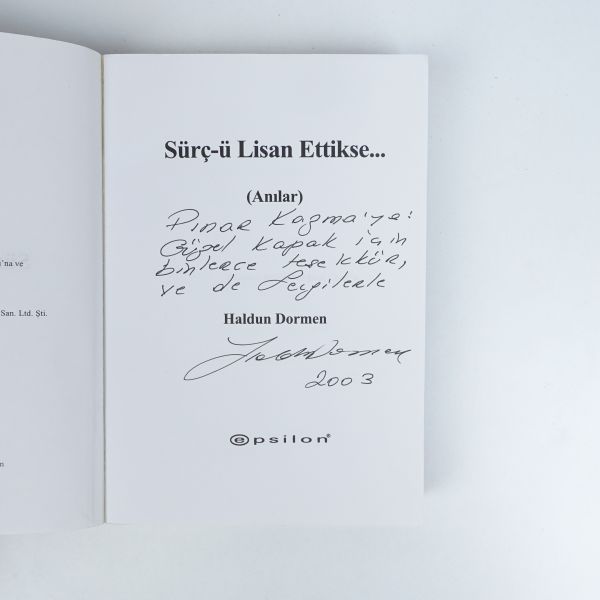 ı'na ve
San. Ltd. Şti.
Sürç-ü Lisan Ettikse...
(Anılar)
Pınar Kazma'ya:
Güzel kapak için
binlerce teşekkür,
ve de Sevgilerle
Haldun Dormen
Haldun Dormen
2003
epsilon®